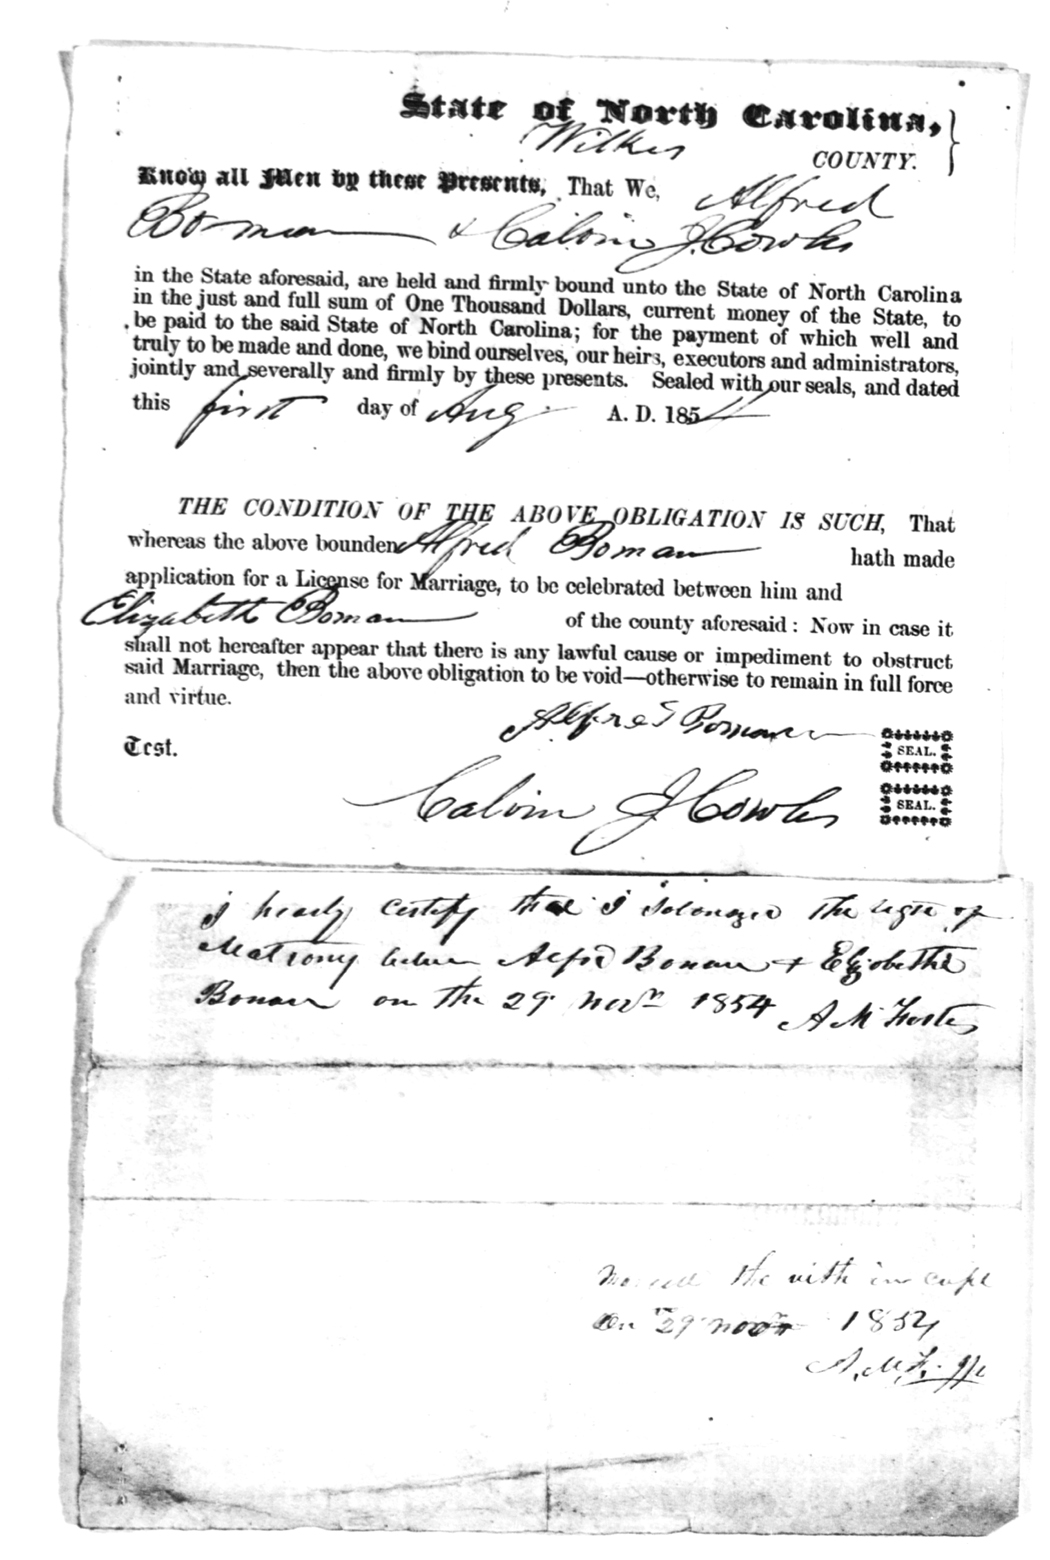 State of North Carolina,
Wilkes COUNTY.
Know all Men by these Presents, That We, Alfred
Boman & Calvin J. Cowles
in the State aforesaid, are held and firmly bound unto the State of North Carolina
in the just and full sum of One Thousand Dollars, current money of the State, to
be paid to the said State of North Carolina; for the payment of which well and
truly to be made and done, we bind ourselves, our heirs, executors and administrators,
jointly and severally and firmly by these presents. Sealed with our seals, and dated
this first day of Aug. A. D. 1854
THE CONDITION OF THE ABOVE OBLIGATION IS SUCH, That
whereas the above bounden Alfred Boman hath made
application for a License for Marriage, to be celebrated between him and
Elizabeth Boman of the county aforesaid: Now in case it
shall not hereafter appear that there is any lawful cause or impediment to obstruct
said Marriage, then the above obligation to be void—otherwise to remain in full force
and virtue.
Alfred Boman SEAL.
Test.
Calvin J Cowles SEAL.
I hearby certify that I the of
Matrony Alfrd Boman + Elizobethe
Boman on the 29 Novr 1854 A M Foster
the with in cupl
On 29 1854
A. M. F.